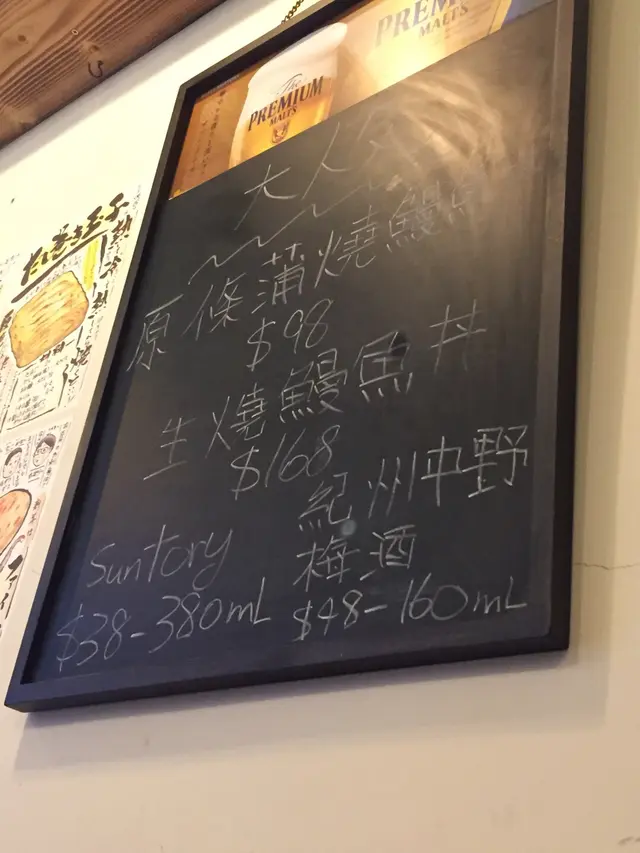 The
PREMIUM
MALTS
PREMIUM
MALTS
大人気
原條蒲燒鰻魚
$98
生燒鰻魚丼
$168
Suntory
$38-380mL
紀州中野
梅酒
$48-160mL
だし巻き玉子